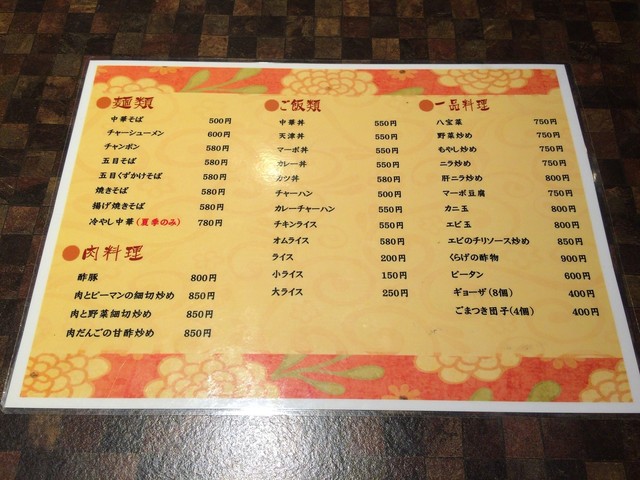 麺類
中華そば 500円
チャーシューメン 600円
チャンポン 580円
五目そば 580円
五目くずかけそば 580円
焼きそば 580円
揚げ焼きそば 580円
冷やし中華(夏季のみ) 780円
肉料理
酢豚 800円
肉とピーマンの細切炒め 850円
肉と野菜細切炒め 850円
肉だんごの甘酢炒め 850円
ご飯類
中華丼 550円
天津丼 550円
マーボ丼 550円
カレー丼 550円
カツ丼 580円
チャーハン 500円
カレーチャーハン 550円
チキンライス 550円
オムライス 580円
ライス 200円
小ライス 150円
大ライス 250円
一品料理
八宝菜 750円
野菜炒め 750円
もやし炒め 750円
ニラ炒め 750円
肝ニラ炒め 800円
マーボ豆腐 750円
カニ玉 800円
エビ玉 800円
エビのチリソース炒め 850円
くらげの酢物 900円
ピータン 600円
ギョーザ(8個) 400円
ごまつき団子(4個) 400円